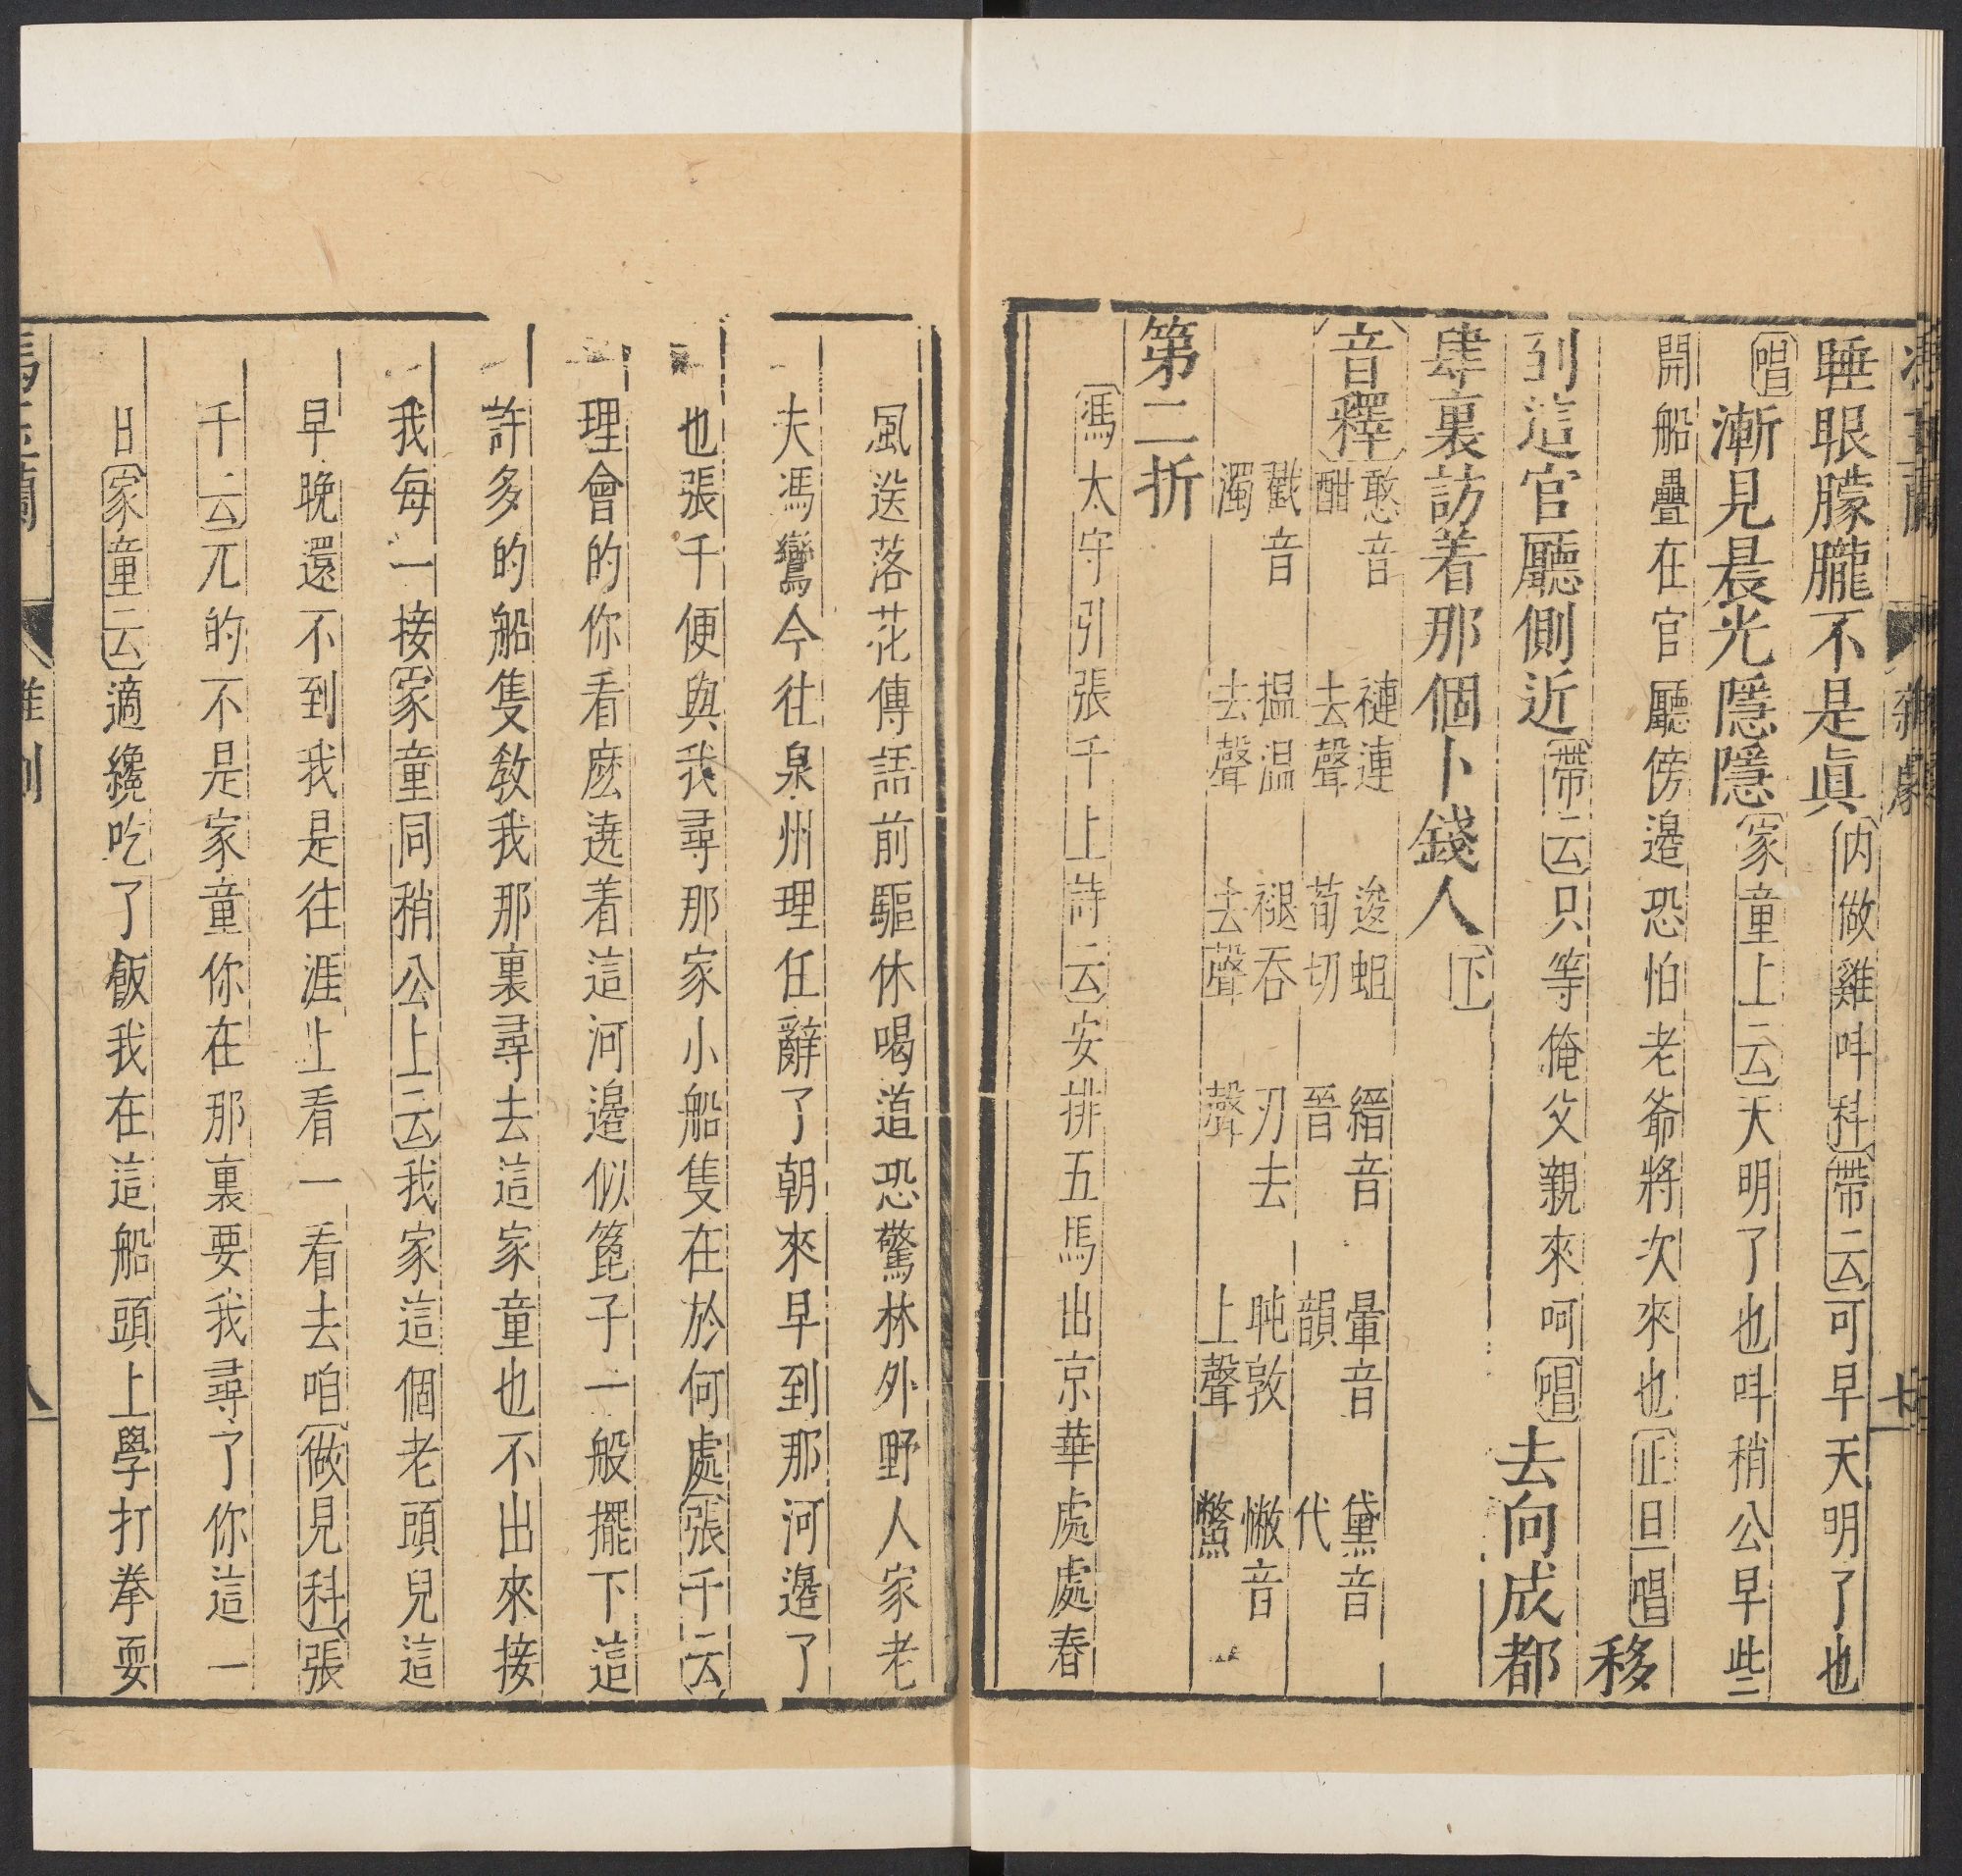 睡眼朦朧不是眞內做雞呌科帶云可早天明了也
唱漸見晨光隱隱家童上云天明了也呌稍公早些
開船疊在官廳傍邊恐怕老爺將次來也正旦唱移
到這官廳側近帶云只等俺父親來呵唱去向成都
肆裏訪着那個卜錢人下
音釋
憨音酣 褳連去聲 逡蛆荀切 縉音晉 暈音韻 黛音代
戳音濁 揾温去聲 褪吞去聲 刃去聲 盹敦上聲 憋音鱉
第二折
馮太守引張千上詩云安排五馬出京華處處春
風送落花傳語前驅休喝道恐驚林外野人家老
夫馮鸞今往泉州理任辭了朝來早到那河邉了
也張千便與我尋那家小船隻在於何處張千云
理會的你看麽遶着這河邉似箆子一般擺下這
許多的船隻敎我那裏尋去這家童也不出來接
我每一接家童同稍公上云我家這個老頭兒這
早晚還不到我是往涯上看一看去咱做見科張
千云兀的不是家童你在那裏要我尋了你這一
日家童云適纔吃了飯我在這船頭上學打拳耍